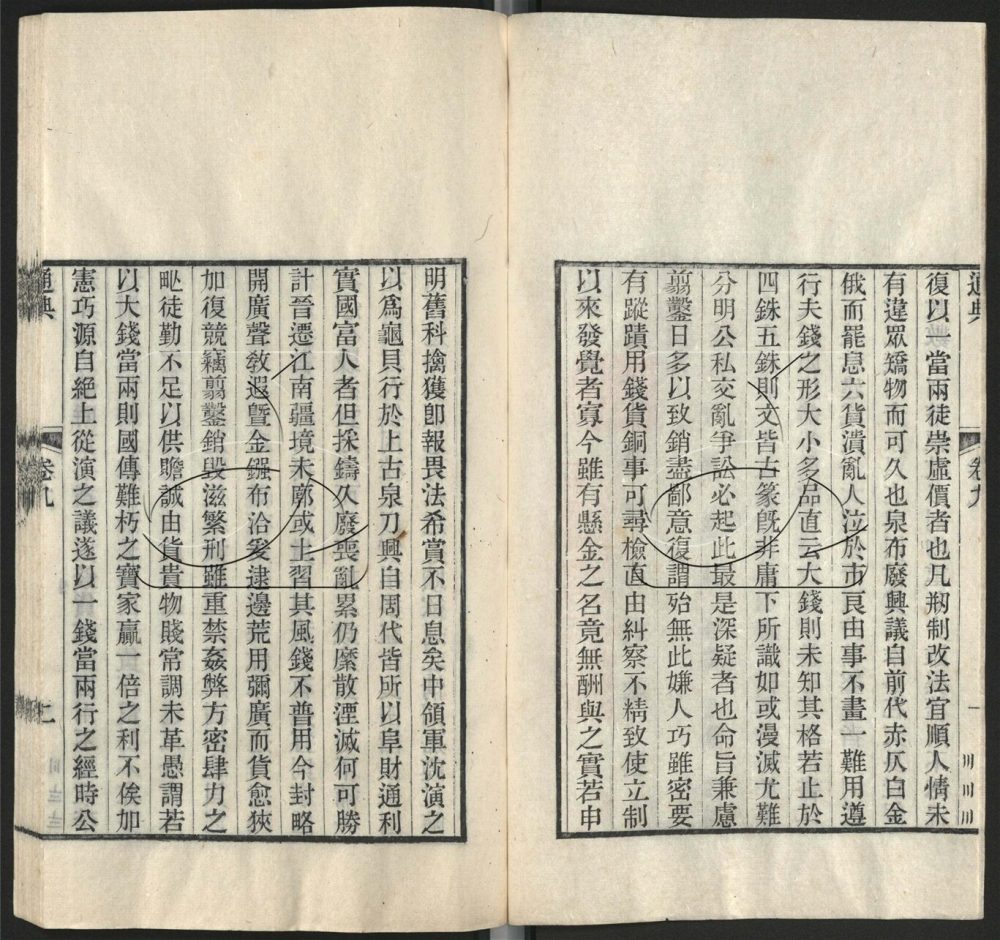 通典
卷九
一
復以
當兩徒崇虛價者也凡剏制改法宜順人情未
有違眾矯物而可久也泉布廢興議自前代赤仄白金
俄而罷息六貨潰亂人泣於市良由事不畫一難用遵
行夫錢之形大小多品直云大錢則未知其格若止於
四銖五銖則文皆古篆旣非庸下所識如或漫滅尤難
分明公私交亂爭訟必起此最是深疑者也命旨兼慮
翦鑿日多以致銷盡鄙意復謂殆無此嫌人巧雖密要
有蹤蹟用錢貨銅事可尋檢直由糾察不精致使立制
以來發覺者寡今雖有懸金之名竟無酬與之實若申
明舊科擒獲卽報畏法希賞不日息矣中領軍沈演之
以爲龜貝行於上古泉刀興自周代皆所以阜財通利
實國富人者但採鑄久廢喪亂累仍縻散湮滅何可勝
計晉遷江南疆境未廓或土習其風錢不普用今封略
開廣聲敎遐暨金鏹布洽爰逮邊荒用彌廣而貨愈狹
加復競竊翦鑿銷毀滋繁刑雖重禁姦弊方密肆力之
甿徒勤不足以供贍誠由貨貴物賤常調未革愚謂若
以大錢當兩則國傳難朽之寶家贏一倍之利不俟加
憲巧源自絕上從演之議遂以一錢當兩行之經時公
通典
卷九
二